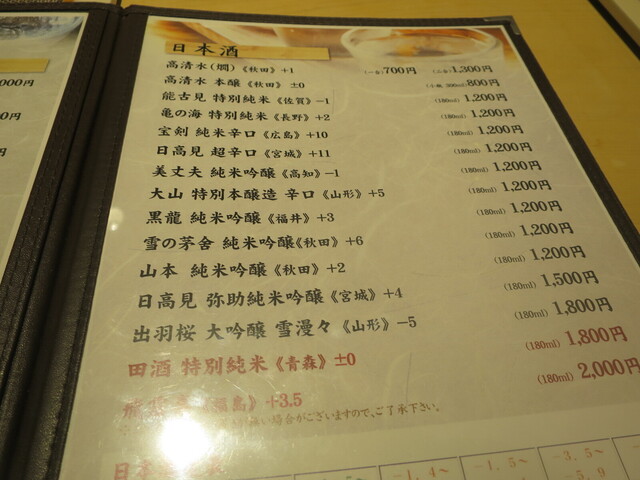 日本酒
高清水(燗)《秋田》+1 (一合)700円 (二合)1,300円
高清水 本醸《秋田》±0 (小瓶 300ml)800円
能古見 特別純米《佐賀》−1 (180ml)1,200円
亀の海 特別純米《長野》+2 (180ml)1,200円
宝剣 純米辛口《広島》+10 (180ml)1,200円
日高見 超辛口《宮城》+11 (180ml)1,200円
美丈夫 純米吟醸《高知》−1 (180ml)1,200円
大山 特別本醸造 辛口《山形》+5 (180ml)1,200円
黒龍 純米吟醸《福井》+3 (180ml)1,200円
雪の茅舎 純米吟醸《秋田》+6 (180ml)1,200円
山本 純米吟醸《秋田》+2 (180ml)1,200円
日高見 弥助純米吟醸《宮城》+4 (180ml)1,500円
出羽桜 大吟醸 雪漫々《山形》−5 (180ml)1,800円
田酒 特別純米《青森》±0 (180ml)1,800円
福島》+3.5 (180ml)2,000円
無い場合がございますので、ご了承下さい。
日本
−1.4〜 −1.5〜 −3.5〜
−5.9
000円
0円
円